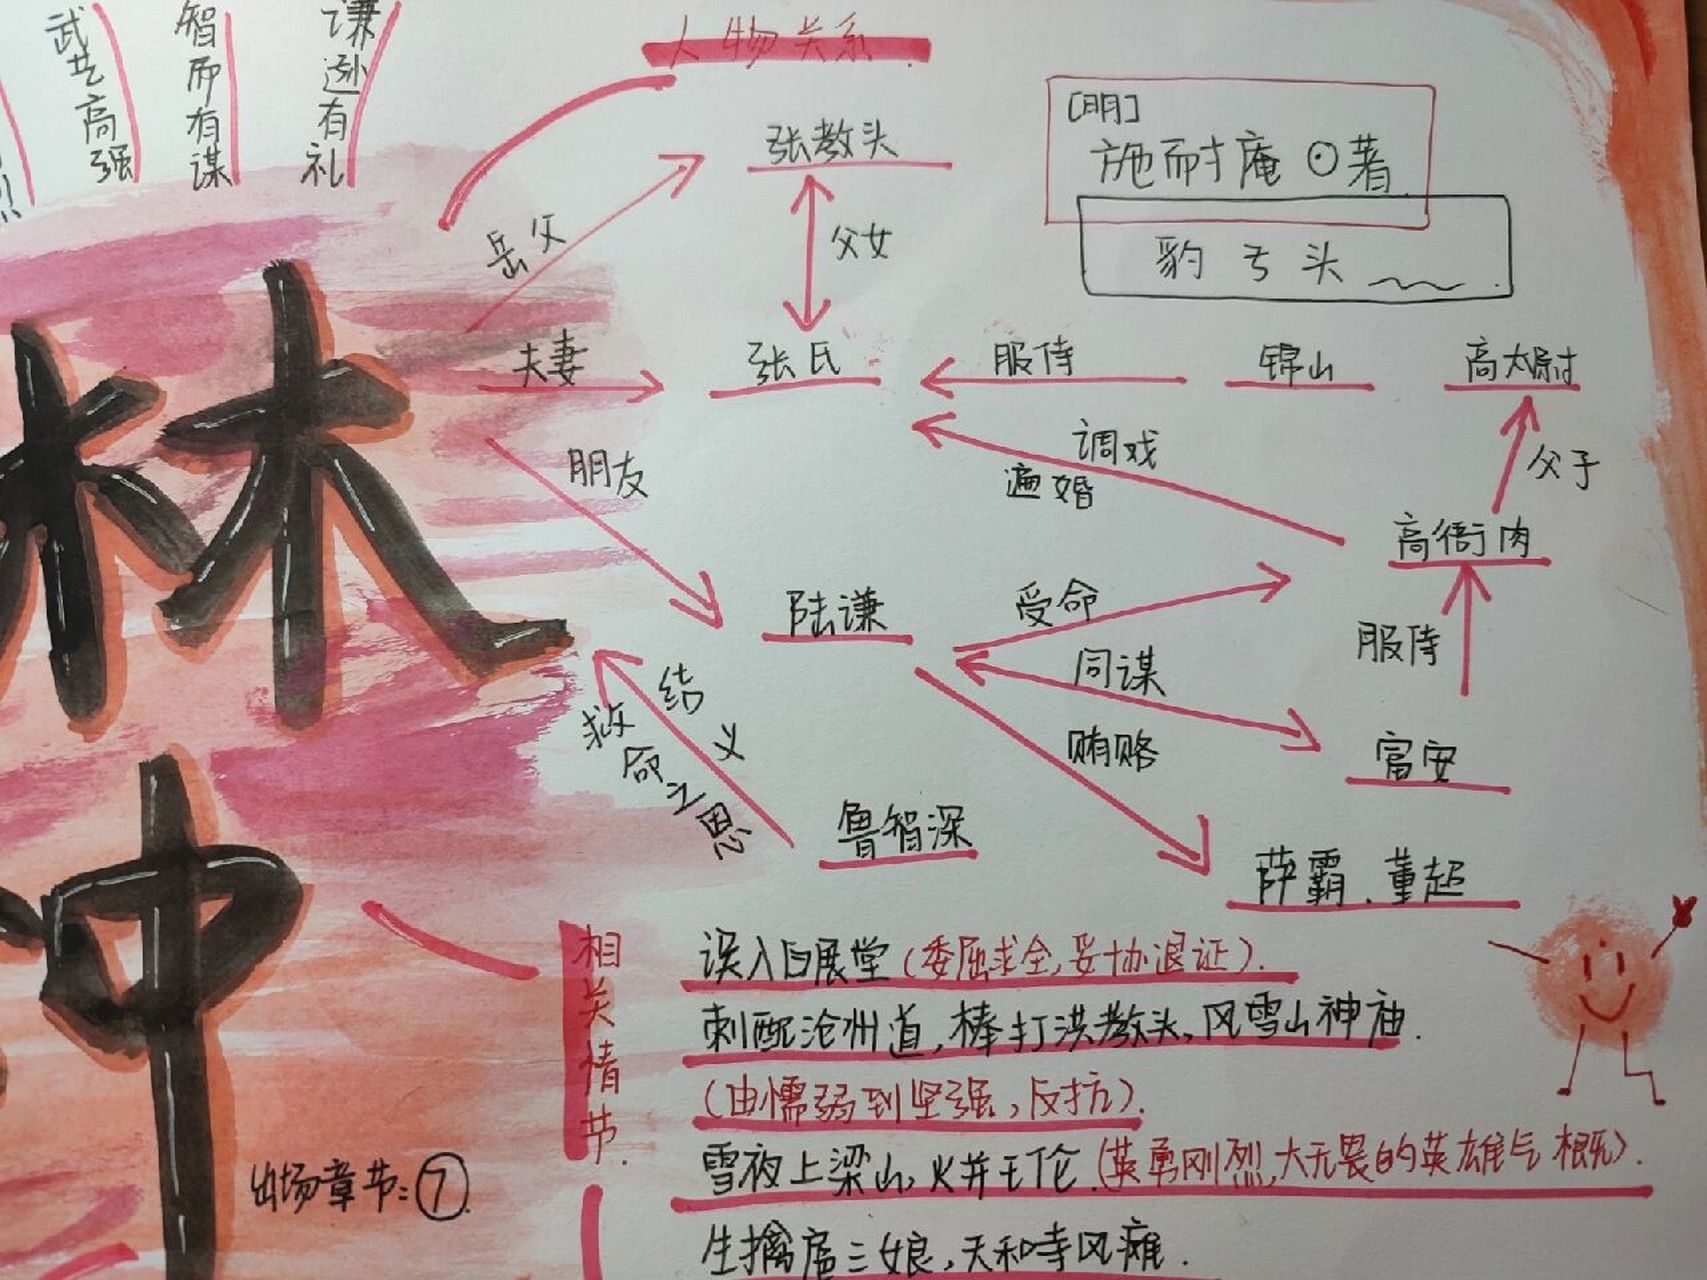 武艺高强
智而有谋
谦逊有礼
人物关系
[明]
施耐庵⊙著
豹子头
张教头
岳父
父女
夫妻
张氏
服侍
锦山
高太尉
朋友
调戏
逼婚
父子
高衙内
陆谦
受命
同谋
服侍
贿赂
富安
结义
救命之恩
鲁智深
薛霸、董超
林
冲
相关情节
误入白展堂(委屈求全,妥协退证).
刺配沧州道,棒打洪教头,风雪山神庙.
(由懦弱到坚强,反抗).
雪夜上梁山,火并王伦.(英勇刚烈,大无畏的英雄气概).
生擒扈三娘,天和寺风瘫.
出场章节:⑦